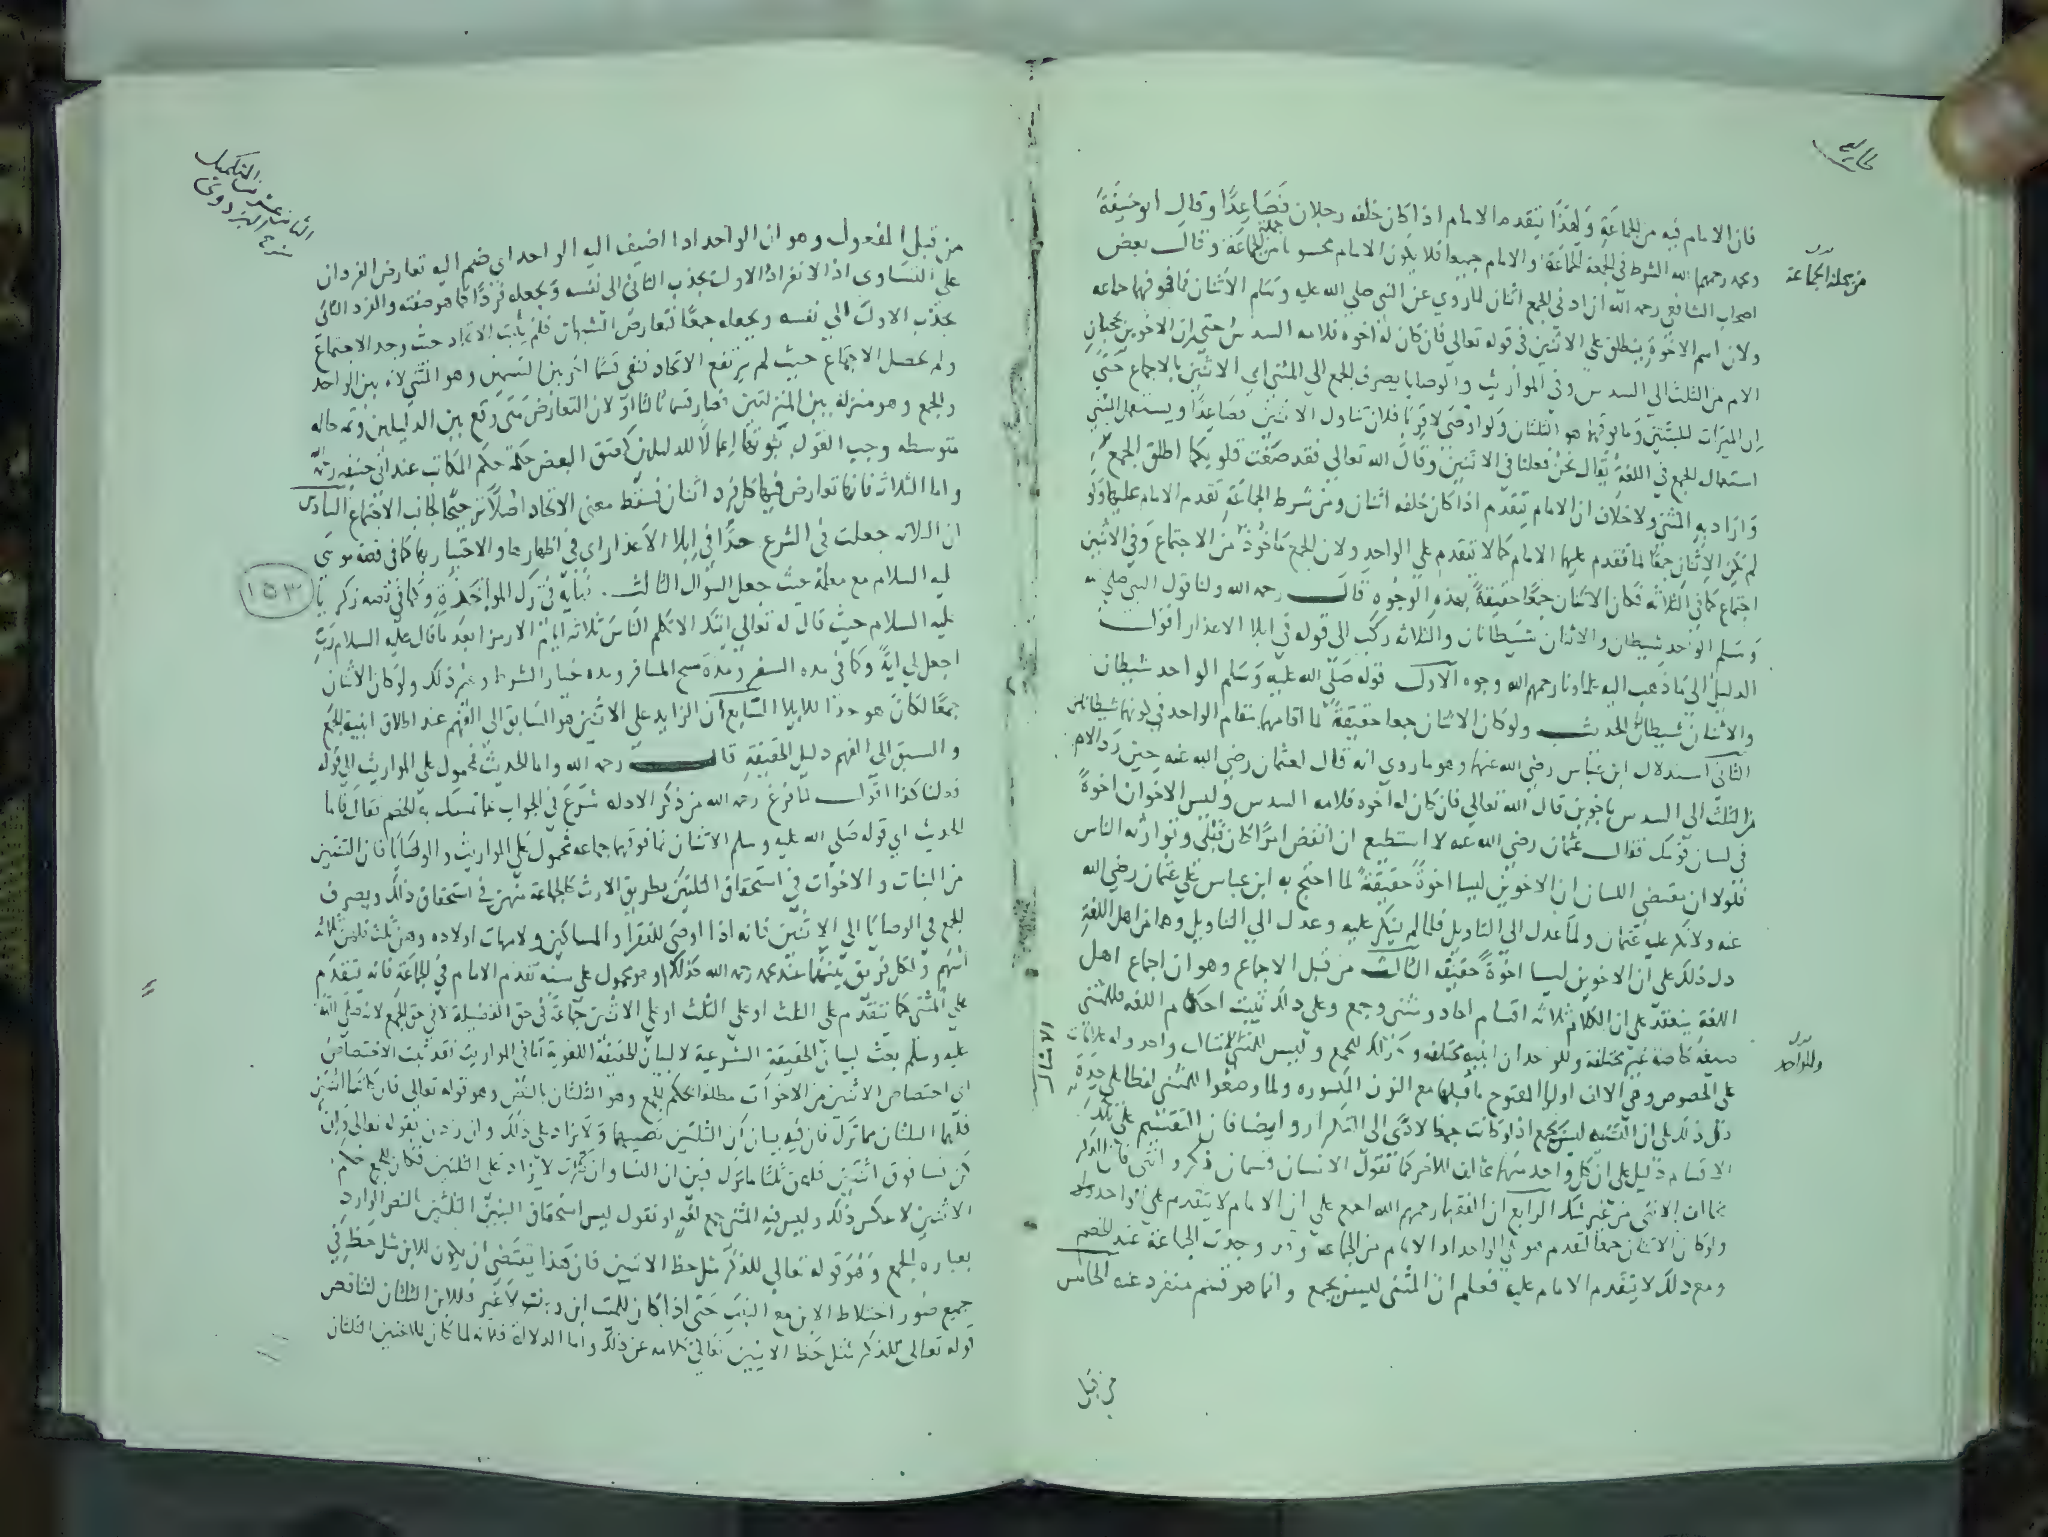 فان الامام فيه من الجماعة ولهذا يتقدم الامام اذا كان خلفه رجلان فصاعدا وقال ابو حنيفة
ومحمد رحمهما الله الشرط في الجمعة الجماعة والامام جميعا فلا يكون الامام محسوبا من جملة الجماعة وقال بعض
من جملة الجماعة
اصحاب الشافعي رحمه الله ان ادنى الجمع اثنان لما روي عن النبي صلى الله عليه وسلم الاثنان فما فوقهما جماعه
ولان اسم الاخوة ينطلق على الاثنين في قوله تعالى فان كان له اخوة فلامه السدس حتى ان الاخوين يحجبان
الام من الثلث الى السدس وفي المواريث والوصايا يصرف الجمع الى المثنى اي الاثنين بالاجماع حتى
ان الميراث للبنتين وما فوقهما هو الثلثان ولو اوصى لاقرباء فلان تناول الاثنين فصاعدا ويستعمل المثنى
استعمال الجمع في اللغة يقال نحن فعلنا في الاثنين وقال الله تعالى فقد صغت قلوبكما اطلق الجمع
واراد به المثنى ولا خلاف ان الامام يتقدم اذا كان خلفه اثنان ومن شرط الجماعة تقدم الامام عليها ولو
لم يكن الاثنان جمعا لما تقدم عليهما الامام كما لا يتقدم على الواحد ولان الجمع ماخوذ من الاجتماع وفي الاثنين
اجتماع كما في الثلاثه فكان الاثنان جمعا حقيقة بهذه الوجوه قال رحمه الله ولنا قول النبي صلى الله
وسلم الواحد شيطان والاثنان شيطانان والثلاثه ركب الى قوله في ابلا الاعذار اقول
الدليل الى ما ذهب اليه علماونا رحمهم الله وجوه الاول قوله صلى الله عليه وسلم الواحد شيطان
والاثنان شيطانان الحديث ولو كان الاثنان جمعا حقيقة لما اقامهما مقام الواحد في كونهما شيطانان
الثاني استدلال ابن عباس رضي الله عنهما وهو ما روي انه قال لعثمان رضي الله عنه حين رد الام
من الثلث الى السدس باخوين قال الله تعالى فان كان له اخوه فلامه السدس وليس الاخوان اخوة
في لسان قومك فقال عثمان رضي الله عنه لا استطيع ان انقض امرا كان قبلي وتوارثه الناس
فلولا ان مقتضى اللسان ان الاخوين ليسا اخوة حقيقة لما احتج به ابن عباس على عثمان رضي الله
عنه ولانكر عليه عثمان ولما عدل الى التاويل فلما لم ينكر عليه وعدل الى التاويل وهما من اهل اللغة
دل ذلك على ان الاخوين ليسا اخوة حقيقه الثالث من قبل الاجماع وهو ان اجماع اهل
اللغة ينعقد على ان الكلام ثلاثه اقسام احاد ومثنى وجمع وعلى ذلك تثبت احكام اللغه فللمثنى
صيغة خاصة غير مختلفة وللوحدان ابنيه مختلفه وكذلك للجمع وليس للمثنى الا مثال واحد وله علامات
وللواحد
الامثال
على الخصوص وهي الالف او اليا المفتوح ما قبلها مع النون المكسوره ولما وضعوا للمثنى لفظا على حدة
دل ذلك على ان التثنيه ليس بجمع اذ لو كانت جمعا لادى الى التكرار وايضا فان التقسيم على تلك
الاقسام دليل على ان كل واحد منها يخالف الاخر كما تقول الانسان قسمان ذكر وانثى فان الذكر
يخالف الانثى من غير شك الرابع ان الفقها رحمهم الله اجمع على ان الامام لا يتقدم على الواحد
ولو كان الاثنان جمعا لتقدم هو على الواحد اذ الامام من الجماعة وقد وجدت الجماعة عند الخصم
ومع ذلك لا يتقدم الامام عليه فعلم ان المثنى ليس بجمع وانما هو قسم منفرد عنه الخامس
من قبل
الثاني عشر من التكميل
البزدوي
من قبل المفعول وهو ان الواحد اذا اضيف اليه الواحد اي ضم اليه تعارض الفردان
على التساوي اذ الانفراد الاول يجذب الثاني الى نفسه ويجعله فردا كما هو صفته والفرد الثاني
يجذب الاول الى نفسه ويجعله جمعا فتعارض الشبهان فلم يثبت الاتحاد حيث وجد الاجتماع
ولم يحصل الاجتماع حيث لم يرتفع الاتحاد فبقي قسما اخر بين القسمين وهو المثنى لانه بين الواحد
والجمع وهو منزلة بين المنزلتين فصار قسما ثالثا ولان التعارض متى وقع بين الدليلين وثمه حاله
متوسطه وجب القول بثبوتها اعمالا للدليلين كمعتق البعض حكمه حكم المكاتب عند ابي حنيفة رحمه الله
واما الثلاثه فانها تعارض فيها كل فرد اثنان فسقط معنى الاتحاد اصلا ترجيحا لجانب الاجتماع السادس
ان الثلاثه جعلت في الشرع حدا في ابلا الاعذار اي في اظهارها والاختبار بها كما في قصة موسى
عليه السلام مع معلمه حيث جعل السوال الثالث نهايه في ترك المواخذة وكما في قصه زكريا
١٥٣
عليه السلام حيث قال له تعالى ايتك الا تكلم الناس ثلاثه ايام الا رمزا بعد ما قال عليه السلام رب
اجعل لي اية وكما في مده السفر ومدة مسح المسافر ومده خيار الشرط وغير ذلك ولو كان الاثنان
جمعا لكان هو حدا للابلا السابع ان الزايد على الاثنين هو السابق الى الفهم عند اطلاق ابنية الجمع
والسبق الى الفهم دليل الحقيقة قال رحمه الله واما الحديث فمحمول على المواريث الى قوله
فدلنا كذا اقول لما فرغ رحمه الله من ذكر الادله شرع في الجواب عما تمسك به الخصم فقال فاما
الحديث اي قوله صلى الله عليه وسلم الاثنان فما فوقهما جماعه محمول على المواريث والوصايا فان الثنتين
من البنات والاخوات في استحقاق الثلثين بطريق الارث كالجماعة منهن في استحقاق ذلك ويصرف
الجمع في الوصايا الى الاثنين فانه اذا اوصى للفقرا والمساكين ولامهات اولاده وهن ثلث فلهن ثلاثه
اسهم ولكل فريق سهما عند محمد رحمه الله كذلك او هو محمول على سنه تقدم الامام في الجماعة فانه يتقدم
على المثنى كما يتقدم على الثلث او على الثلث او على الاثنين جماعة في حق الفضيلة لا في حق الجمع لانه صلى الله
عليه وسلم بعث لبيان الحقيقة الشرعية لا لبيان الحقيقة اللغوية اما في المواريث فقد ثبت الاختصاص
اي اختصاص الاثنين من الاخوات مطلقا بحكم الجمع وهو الثلثان بالنص وهو قوله تعالى فان كانتا اثنتين
فلهما الثلثان مما ترك فان فيه بيان ان الثلثين نصيبهما ولا يزاد على ذلك وان زدن بقوله تعالى وان
كن نسا فوق اثنتين فلهن ثلثا ما ترك فبين ان النسا وان كثرت لا يزاد على الثلثين فكان للجمع حكم
الاثنين لا عكس ذلك وليس فيه المثنى جمع لغة او نقول ليس استحقاق البنتين الثلثين بالنص الوارد
بعباره الجمع وهو قوله تعالى للذكر مثل حظ الانثيين فان هذا يقتضي ان يكون للابن مثل حظ في
جميع صور اختلاط الابن مع البنت حتى اذا كان للميت ابن وبنت لا غير فللابن الثلثان لتناقض
قوله تعالى للذكر مثل حظ الانثيين تعالى كلامه عن ذلك واما الدلالة فلانه لما كان للاختين الثلثان